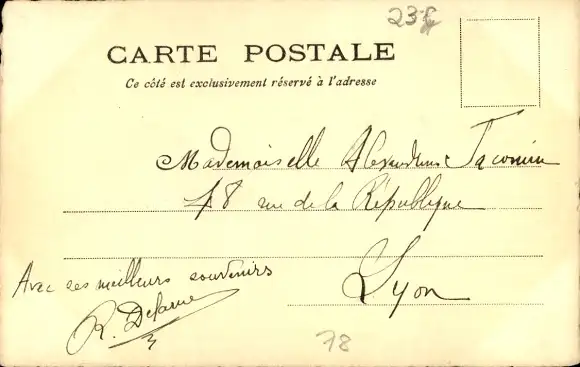 23
CARTE POSTALE
Ce côté est exclusivement réservé à l'adresse
Mademoiselle
48 rue de la République
Lyon
Avec ses meilleurs souvenirs
R.
78